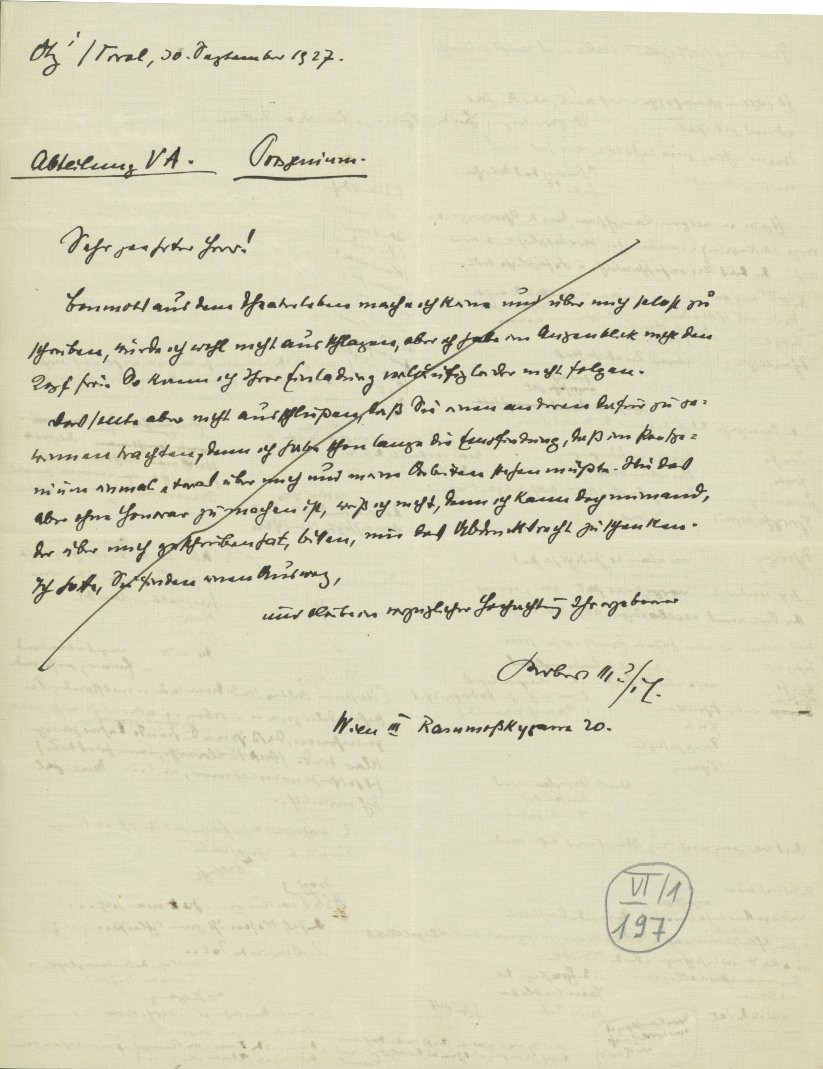 Ötz / Tirol, 30. September 1927.
Abteilung VA. Proszenium.
Sehr geehrter Herr!
Bonmots aus dem Theaterleben mache ich keine und über mich selbst zu
schreiben, würde ich wohl nicht ausschlagen, aber ich habe im Augenblick nicht den
Kopf frei. So kann ich Ihrer Einladung vorläufig leider nicht folgen.
Das sollte aber nicht ausschließen, daß Sie einen anderen dafür zu ge-
winnen trachten, denn ich habe schon lange die Empfindung, daß im Prosze-
nium einmal etwas über mich und meine Arbeiten stehen müßte. Wie das
aber ohne Honorar zu machen ist, weiß ich nicht, denn ich kann doch niemand,
der über mich geschrieben hat, bitten, mir das Abdrucksrecht zu schenken.
Ich hoffe, Sie finden einen Ausweg,
und bleibe in vorzüglicher Hochachtung Ihr ergebener
Robert Musil.
Wien III Rasumofskygasse 20.
VI/1
197